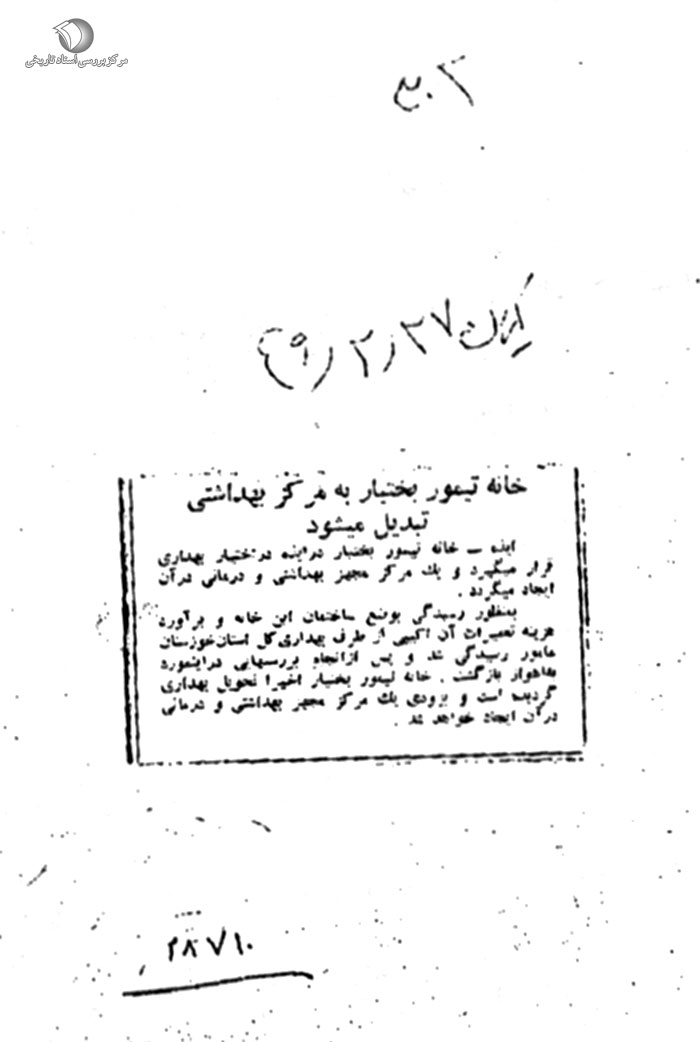 مرکز بررسی اسناد تاریخی
۴۹/۲/۲۷
خانه تیمور بختیار به مرکز بهداشتی
تبدیل میشود
ایذه ــ خانه تیمور بختیار در ایذه در اختیار بهداری
قرار میگیرد و یک مرکز مجهز بهداشتی و درمانی در آن
ایجاد میگردد .
بمنظور رسیدگی بوضع ساختمان این خانه و برآورد
هزینه تعمیرات آن اکیپی از طرف بهداری کل استان خوزستان
مامور رسیدگی شد و پس از انجام بررسیهایی در اینمورد
باهواز بازگشت . خانه تیمور بختیار اخیرا تحویل بهداری
گردیده است و بزودی یک مرکز مجهز بهداشتی و درمانی
در آن ایجاد خواهد شد .
۲۸۷۱۰